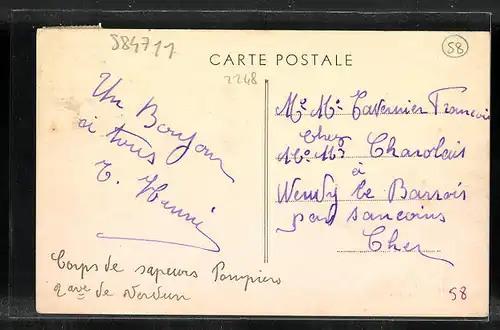 584711
CARTE POSTALE
58
2248
Un Bonjour
à tous
T. Henri
Mr. Mme Tavernier François
Chez
Mr. Mme Charolais
à
Neuvy le Barrois
par Sancoins
Cher
Corps de sapeurs Pompiers
2 ave de Verdun
58